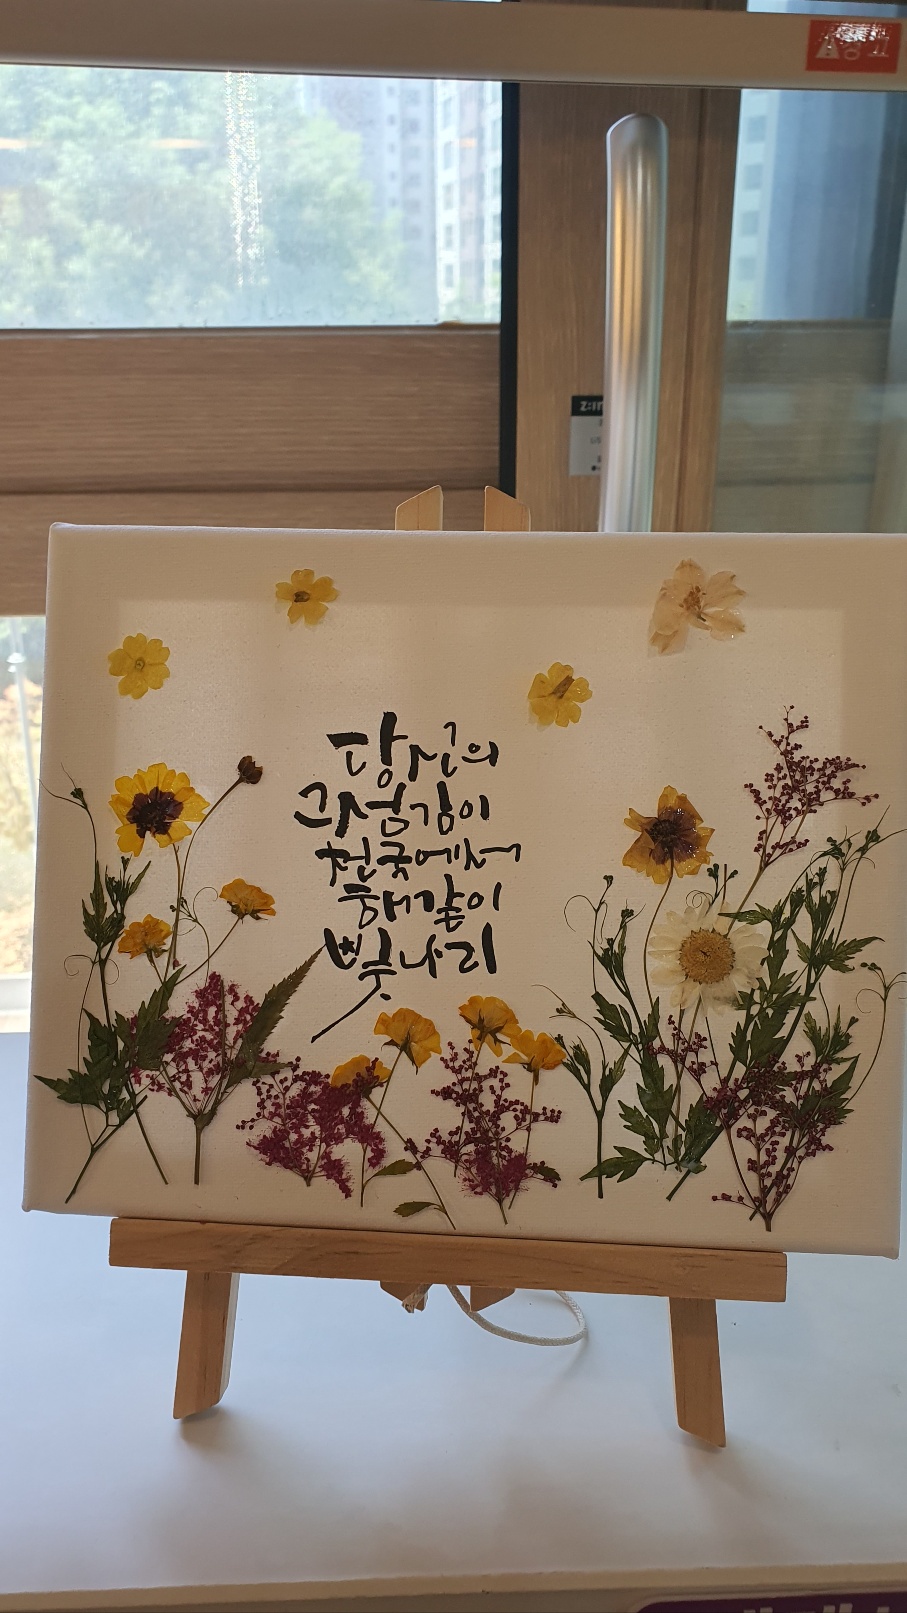 당신의
그섬김이
천국에서
해같이
빛나리